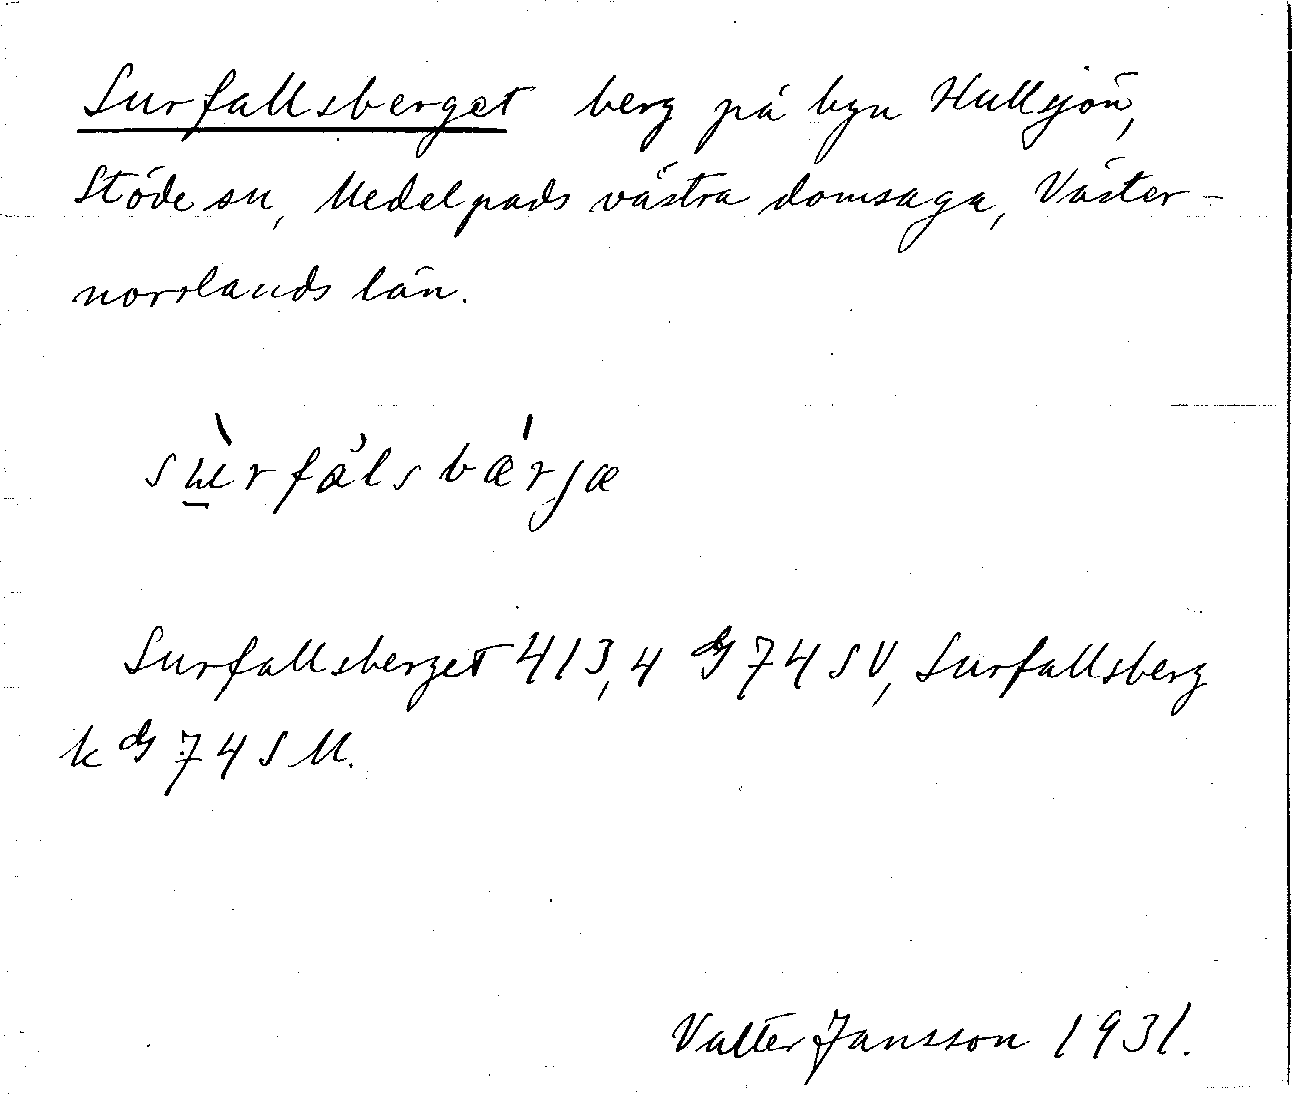 Surfallsberget berg på byn Hullsjön,
Stöde sn, Medelpads västra domsaga, Väster-
norrlands län.
sɯ̱̀rfal̓sbǽrjæ
Surfallsberget 413,4 74 SV, Surfallsberg
k 74 S M.
Valter Jansson 1931.